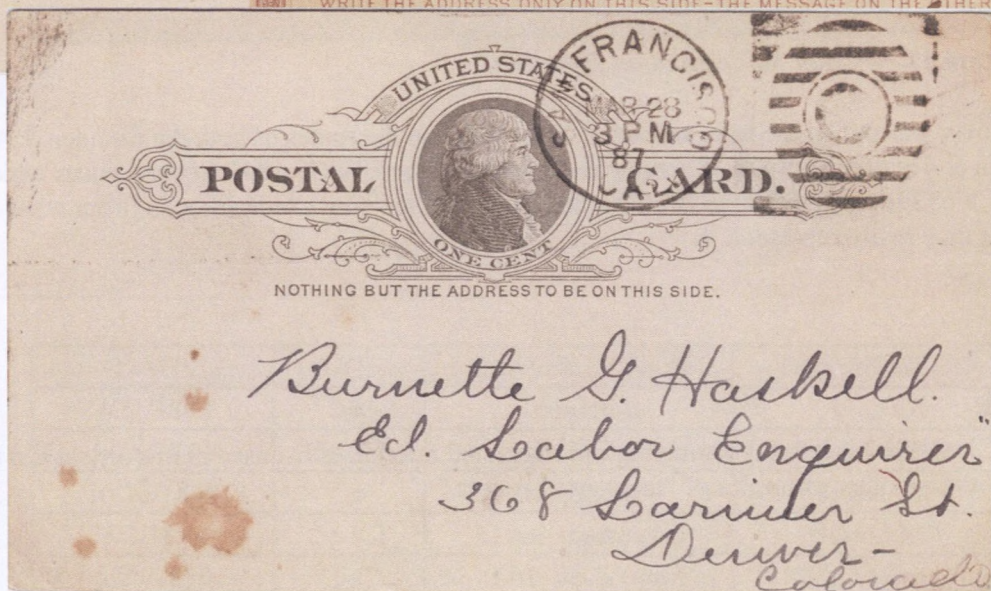 WRITE THE ADDRESS ONLY ON THIS SIDE-THE MESSAGE ON THE OTHER
UNITED STATES
POSTAL CARD.
ONE CENT
FRANCISCO
MAR 28
3 PM
87
CAL
NOTHING BUT THE ADDRESS TO BE ON THIS SIDE.
Burnette G. Haskell.
Ed. Labor Enquirer"
368 Larimer St.
Denver-
Colorado